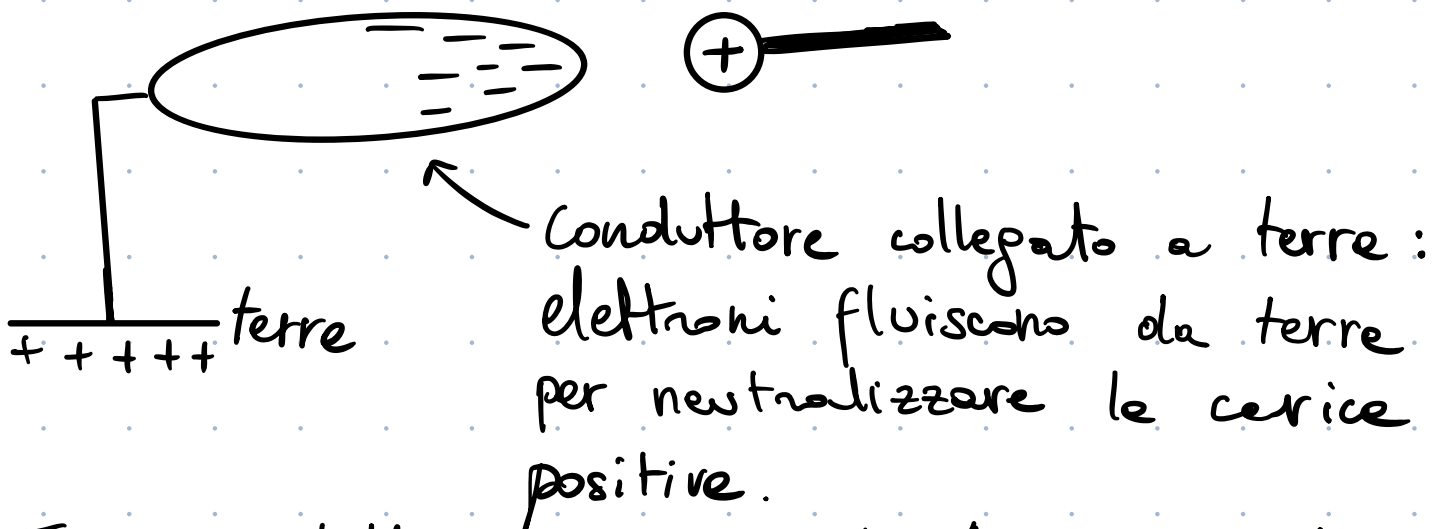 +
Conduttore collegato a terra:
elettroni fluiscono da terra
terra
+ + + + +
per neutralizzare la carica
positiva.